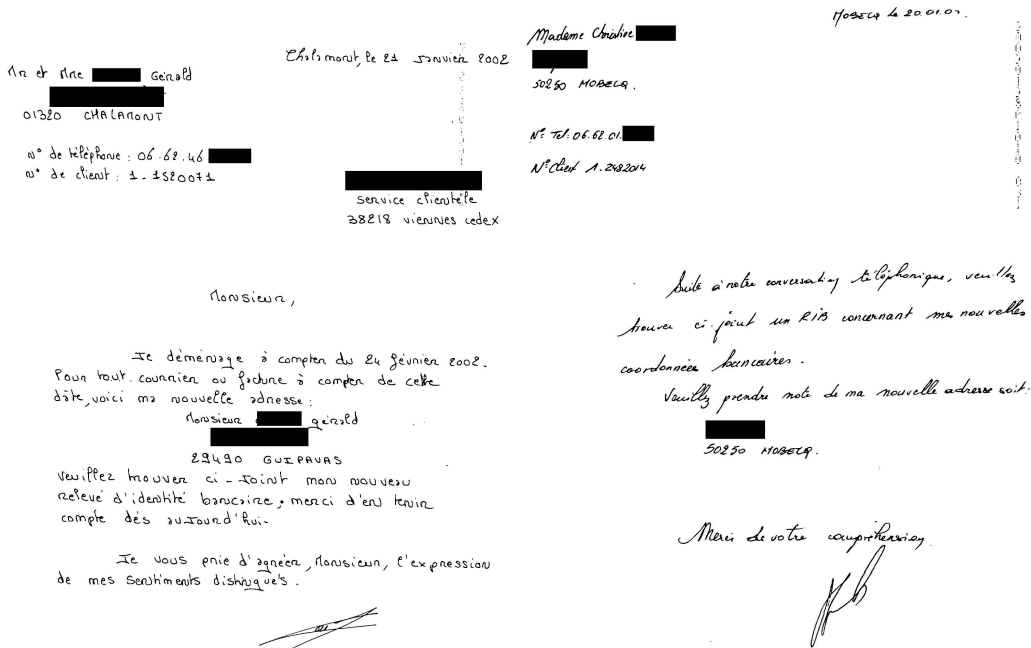 Mr et Mme Gérald
01320 CHALAMONT
n° de téléphone : 06.62.46
n° de client : 1-1520071
Chalamont, le 21 Janvier 2002
Service clientèle
38218 viennes cedex
Monsieur,
Je déménage à compter du 24 février 2002.
Pour tout courrier ou facture à compter de cette
date, voici ma nouvelle adresse :
Monsieur gérald
29490 GUIPAVAS
veuillez trouver ci-joint mon nouveau
relevé d'identité bancaire, merci d'en tenir
compte dès aujourd'hui-
Je vous prie d'agréer, Monsieur, l'expression
de mes sentiments distingués.
MOBECQ le 20.01.02.
Madame Christine
50250 MOBECQ.
N° Tel: 06.62.01.
N° Client 1.2482014
Suite à notre conversation téléphonique, veuillez
trouver ci-joint un RIB concernant mes nouvelles
coordonnées bancaires.
Veuillez prendre note de ma nouvelle adresse soit:
50250 MOBECQ.
Merci de votre compréhension.